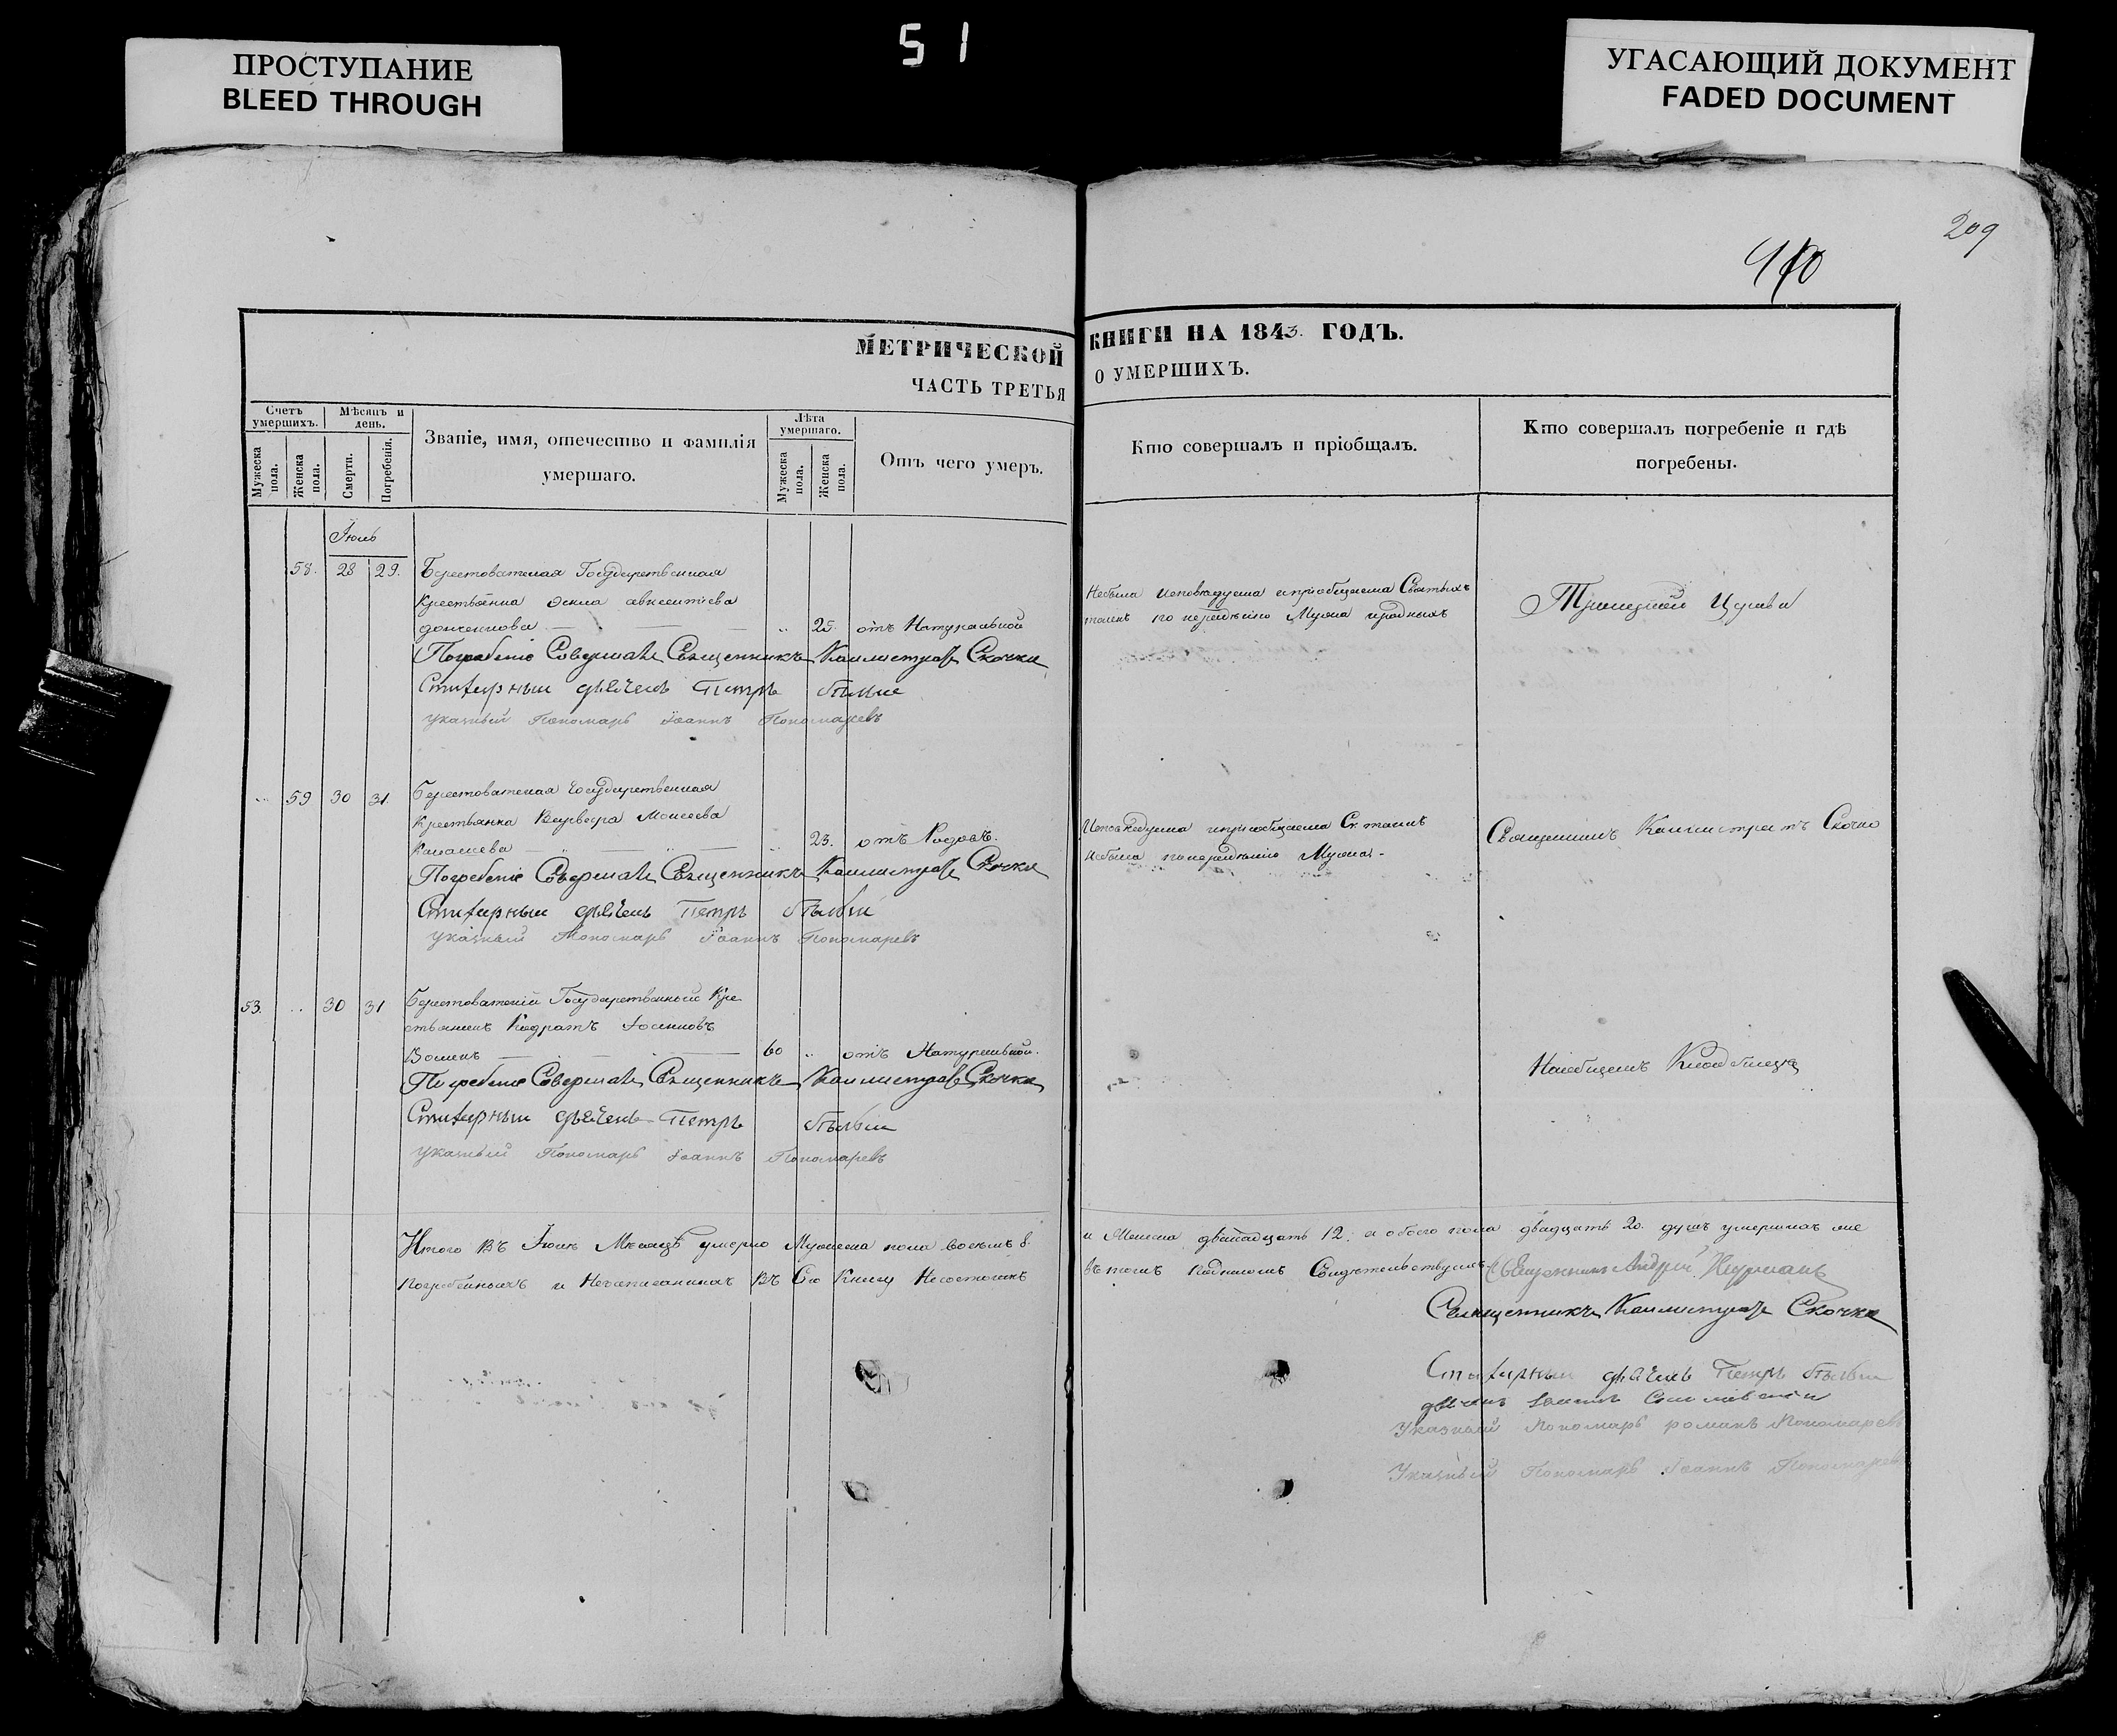 51
ПРОСТУПАНИЕ
BLEED THROUGH
УГАСАЮЩИЙ ДОКУМЕНТ
FADED DOCUMENT
209
МЕТРИЧЕСКОЙ КНИГИ НА 1843. ГОДЪ.
ЧАСТЬ ТРЕТЬЯ О УМЕРШИХЪ.
Счетъ умершихъ.
Мужеска пола.
Женска пола.
Мѣсяцъ и день.
Смерти.
Погребенія.
Званіе, имя, отечество и фамилія
умершаго.
Лѣта умершаго.
Мужеска пола.
Женска пола.
Отъ чего умеръ.
Кто совершалъ и пріобщалъ.
Кто совершалъ погребеніе и гдѣ
погребены.
Іюль
58. 28 29. Берестоватская Государственная
Крестьянка
25. отъ Натуральной
Небыла Исповѣдуема ипріобщаема Святыхъ
таинъ
Погребеніе Совершалъ Священникъ Каллистратъ Скочко
Стихарный дьячекъ Петръ Бѣлый
указный Пономарь Іоаннъ Пономаревъ
59 30 31. Берестоватская Государственная
Крестьянка Варвара Моисеева
23. отъ Родовъ.
Исповѣдуема ипріобщаема Св. таинъ
небыла
Священникъ Каллистратъ Скочко
Погребеніе Совершалъ Священникъ Каллистратъ Скочко
Стихарный дьячекъ Петръ Бѣлый
указный Пономарь Іоаннъ Пономаревъ
53. 30 31 Берестоватскій Государственный Кре
стьянинъ Кодратъ
60 отъ Натуральной.
Погребеніе Совершалъ Священникъ Каллистратъ Скочко
Стихарный дьячекъ Петръ Бѣлый
указный Пономарь Іоаннъ Пономаревъ
Итого Въ Іюлѣ Мѣсяцѣ умерло Мужеска пола восемь 8. и Женска двенадцать 12. а обоего пола двадцать 20. душъ
Погребенныхъ и Незаписанныхъ Въ Сію Книгу Несостоитъ въ томъ Свидетельствуемъ Священникъ Андрей
Священникъ Каллистратъ Скочко
Стихарный дьячекъ Петръ Бѣлый
дьячекъ Іоаннъ
Указный Пономарь романъ Пономаревъ
Указный Пономарь Іоаннъ Пономаревъ